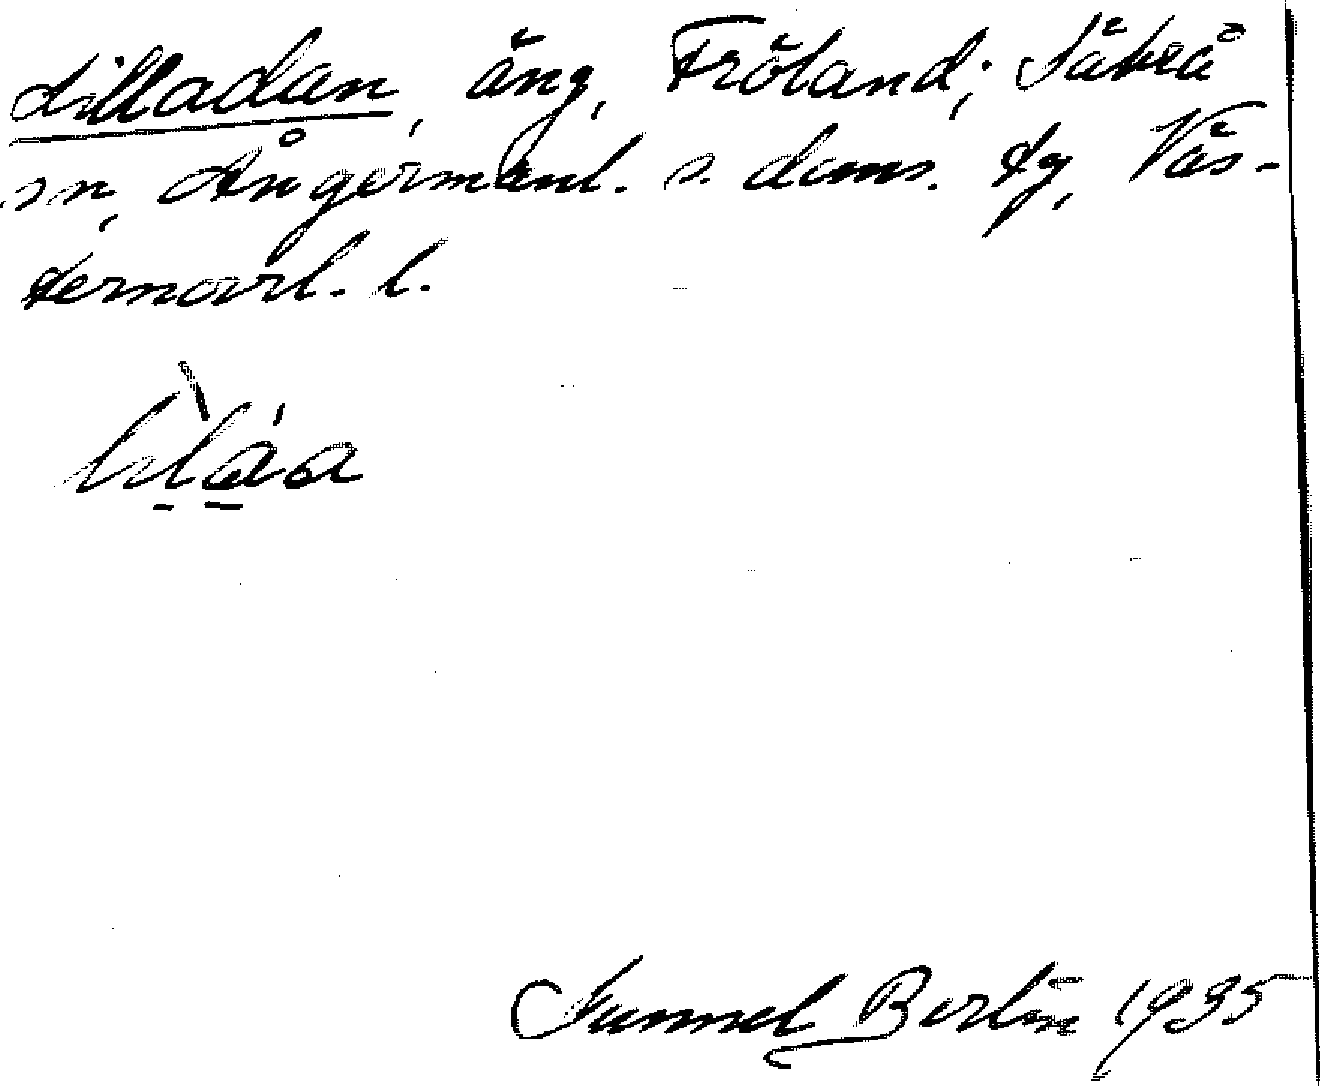 Lilladan, äng, Fröland; Säbrå
sn, Ångermanl. s. doms. tg, Väs-
ternorrl. l.
Gunnel Berlin 1935